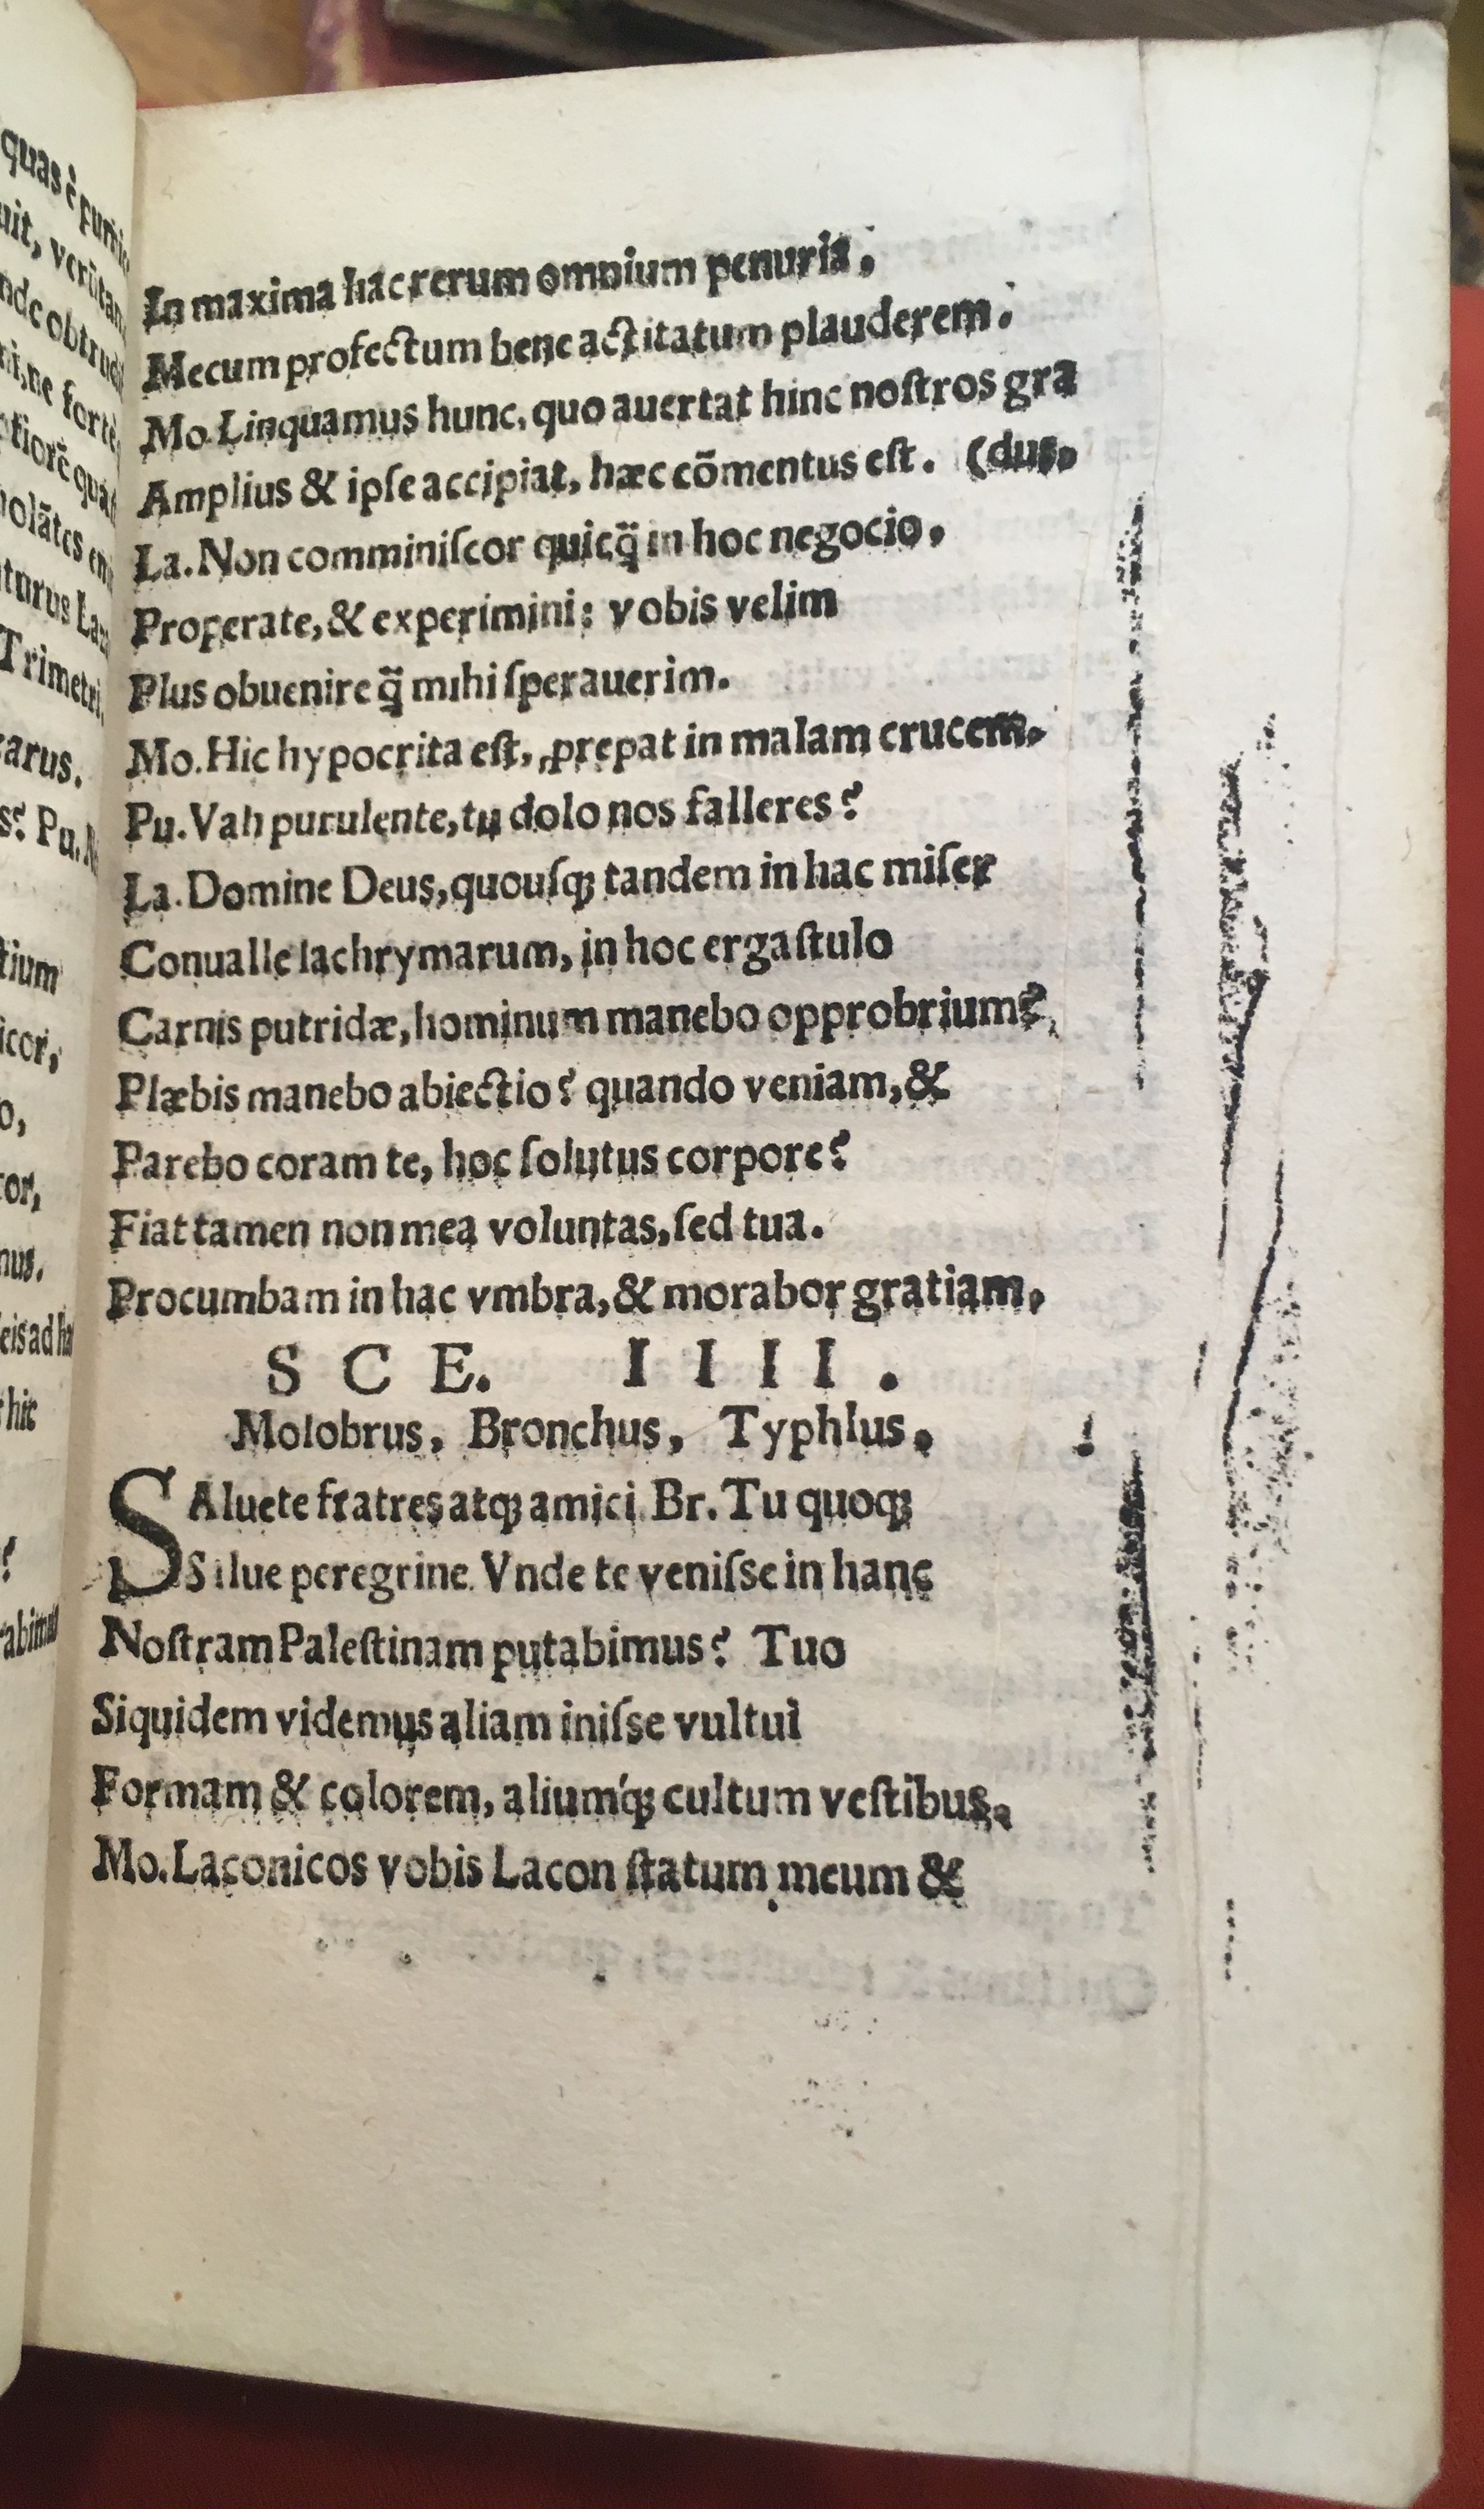 quas è pumic
uit, verūtam
nde obtrud
ni, ne fortè
tiorē quàm
olātes eni
turus La
Trimetri.
arus.
s? Pu. N
tium
icor,
o,
tor,
nus.
eis ad ha
hic
?
rabimus
In maxima hac rerum omnium penuria,
Mecum profectum bene actitatum plauderem.
Mo. Linquamus hunc, quo auertat hinc noſtros gra
Amplius & ipſe accipiat, hæc cōmentus eſt. (dus.
La. Non comminiſcor quicq̃ in hoc negocio,
Properate, & experimini: vobis velim
Plus obuenire q̃ mihi ſperauerim.
Mo. Hic hypocrita eſt, ꝓrepat in malam crucem.
Pu. Vah purulente, tu dolo nos falleres?
La. Domine Deus, quouſqꝫ tandem in hac miſer
Conualle lachrymarum, in hoc ergaſtulo
Carnis putridæ, hominum manebo opprobrium?
Plæbis manebo abiectio? quando veniam, &
Parebo coram te, hoc ſolutus corpore?
Fiat tamen non mea voluntas, ſed tua.
Procumbam in hac vmbra, & morabor gratiam.
SCE. IIII.
Molobrus, Bronchus, Typhlus.
SAluete fratres atqꝫ amici. Br. Tu quoqꝫ
Salue peregrine. Vnde te veniſse in hanc
Noſtram Paleſtinam putabimus? Tuo
Siquidem videmus aliam iniſse vultui
Formam & colorem, aliumq́ꝫ cultum veſtibus.
Mo. Laconicos vobis Lacon ſtatum meum &